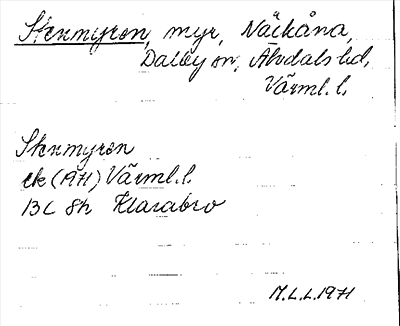 Stenmyren, myr, Näckåna,
Dalby sn, Älvdals hd,
Värml. l.
Stenmyren
ek (1971) Värml. l.
13C 8h Klarabro
M.L.L. 1971